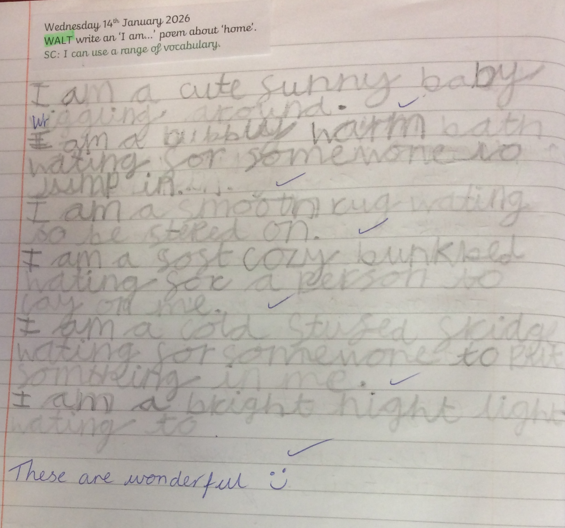 Wednesday 14th January 2026
WALT write an 'I am...' poem about 'home'.
SC: I can use a range of vocabulary.
I am a cute sunny baby
wrigging around.
I am a bubbly warm bath
wating for somewone to
jump in.....
I am a smooth rug wating
to be steped on.
I am a soft cozy bunkbed
wating for a person to
lay on me.
I am a cold stufed fridge
wating for somewone to put
something in me.
I am a bright night light
wating to
These are wonderful